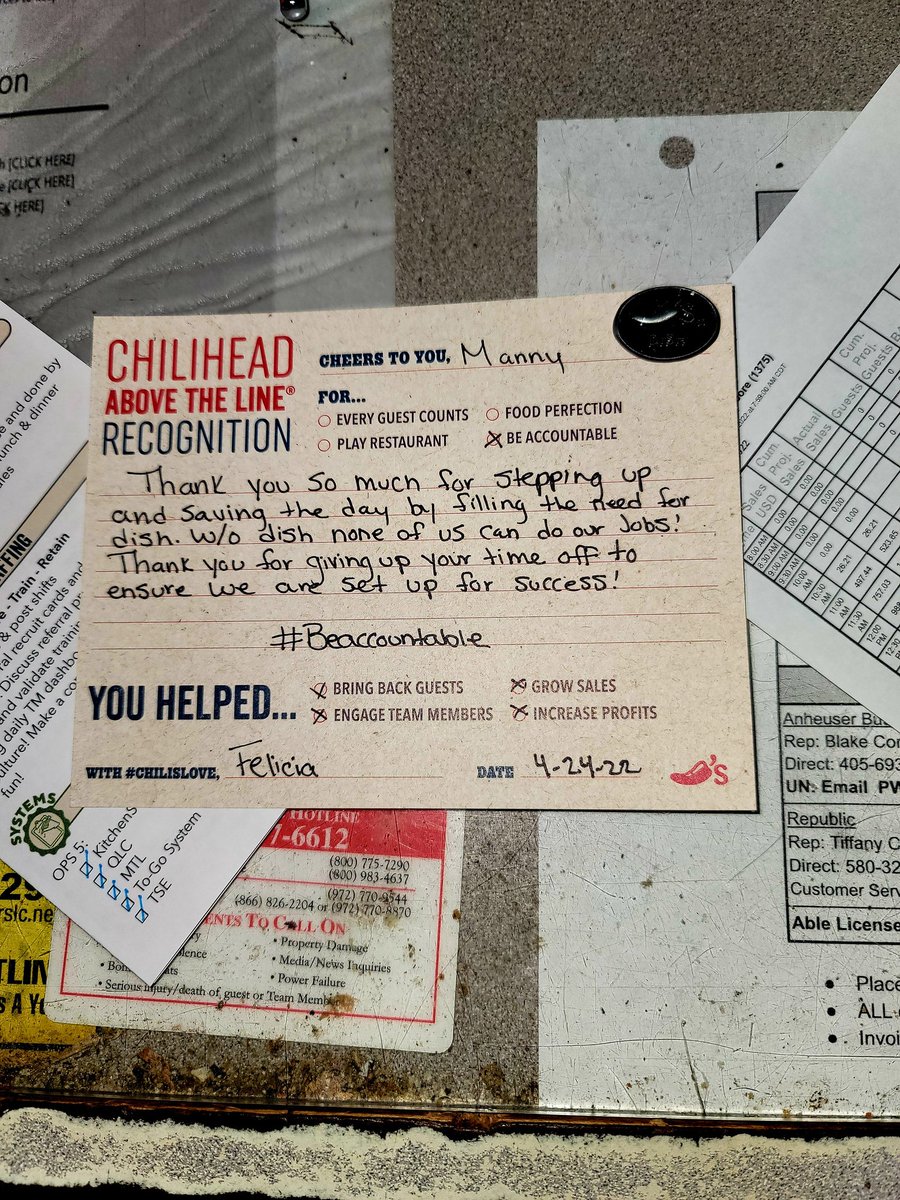 on
[CLICK HERE]
[CLICK HERE]
HERE]
CHILIHEAD
ABOVE THE LINE®
RECOGNITION
CHEERS TO YOU, Manny
FOR...
EVERY GUEST COUNTS
FOOD PERFECTION
PLAY RESTAURANT
BE ACCOUNTABLE
Thank you so much for stepping up
and saving the day by filling the need for
dish. W/o dish none of us can do our Jobs!
Thank you for giving up your time off to
ensure we are set up for success!
#Beaccountable
YOU HELPED...
BRING BACK GUESTS
GROW SALES
ENGAGE TEAM MEMBERS
INCREASE PROFITS
WITH #CHILISLOVE, Felicia
DATE 4-24-22
'S
e and done by
unch & dinner
les
FFING
e - Train - Retain
& post shifts
ral recruit cards and
. Discuss referral
and validate
g daily TM
ulture! Make a
fun!
SYSTEMS
OPS 5:
QLC
MTL
To-Go System
TSE
HOTLINE
-6612
(800) 775-7290
(800) 983-4637
(972) 770-9544
(866) 826-2204 or (972) 770-8870
TO CALL ON
• Property Damage
• Media/News Inquiries
• Power Failure
• Serious injury/death of guest or Team
ore (1375)
22 at 7:59:30 AM CDT
Cum.
Proj.
Guests
Actual
Sales
8:00 AM
8:30 AM
9:00 AM
9:30 AM
10:00 AM
10:30 AM
11:00 AM
11:30 AM
12:00 PM
0.00
26.21
497.44
757.03
523.65
Anheuser
Rep: Blake
Direct: 405-693
UN: Email
Republic
Rep: Tiffany
Direct: 580-32
Customer
Able
• ALL